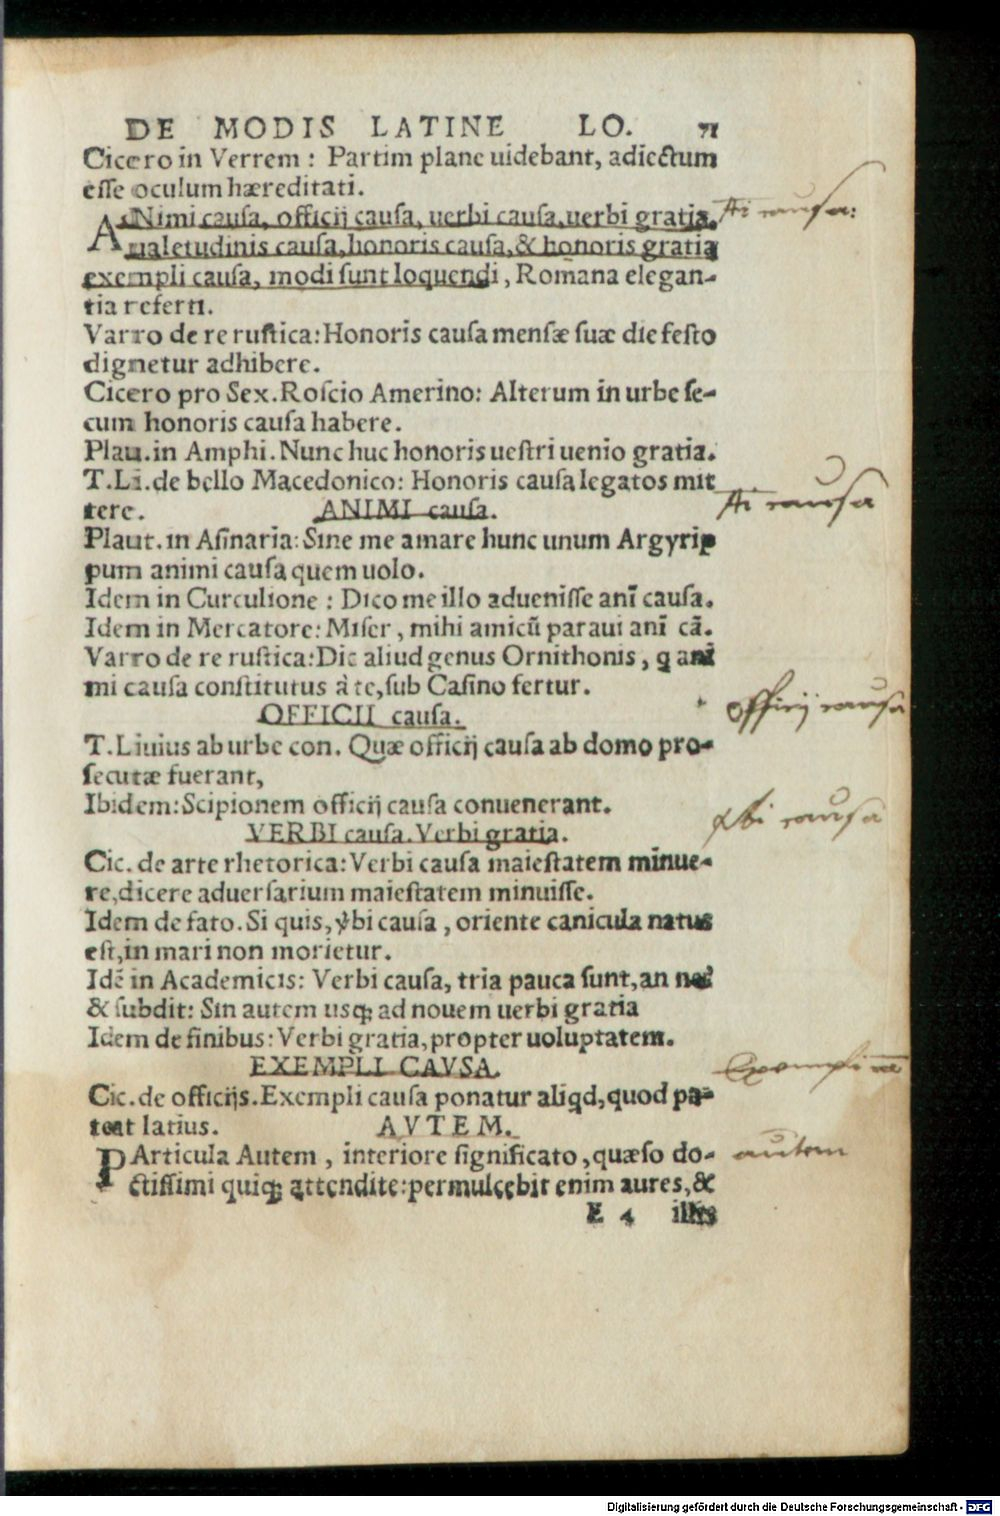 DE MODIS LATINE LO. 71
Cicero in Verrem: Partim plane uidebant, adiectum
esse oculum hæreditati.
ANimi causa, officij causa, uerbi causa, uerbi gratia,
ualetudinis causa, honoris causa, & honoris gratia
exempli causa, modi sunt loquendi, Romana elegan-
tia referti.
Varro de re rustica: Honoris causa mensæ suæ die festo
dignetur adhibere.
Cicero pro Sex. Roscio Amerino: Alterum in urbe se-
cum honoris causa habere.
Plau. in Amphi. Nunc huc honoris uestri uenio gratia.
T. Li. de bello Macedonico: Honoris causa legatos mit
tere. ANIMI causa.
Plaut. in Asinaria: Sine me amare hunc unum Argyrip
pum animi causa quem uolo.
Idem in Curculione: Dico me illo aduenisse anī causa.
Idem in Mercatore: Miser, mihi amicū paraui anī cā.
Varro de re rustica: Dic aliud genus Ornithonis, q ani
mi causa constitutus à te, sub Casino fertur.
OFFICII causa.
T. Liuius ab urbe con. Quæ officij causa ab domo pro-
secutæ fuerant,
Ibidem: Scipionem officij causa conuenerant.
VERBI causa. Verbi gratia.
Cic. de arte rhetorica: Verbi causa maiestatem minue-
re, dicere aduersarium maiestatem minuisse.
Idem de fato. Si quis, ꝟbi causa, oriente canicula natus
est, in mari non morietur.
Idē in Academicis: Verbi causa, tria pauca sunt, an ne?
& subdit: Sin autem usq; ad nouem uerbi gratia
Idem de finibus: Verbi gratia, propter uoluptatem.
EXEMPLI CAVSA.
Cic. de officijs. Exempli causa ponatur aliqd, quod pa-
teat latius. AVTEM.
PArticula Autem, interiore significato, quæso do-
ctissimi quiq; attendite: permulcebit enim aures, &
E 4 illis
causa:
causa
officij causa
causa
autem
Digitalisierung gefördert durch die Deutsche Forschungsgemeinschaft - DFG